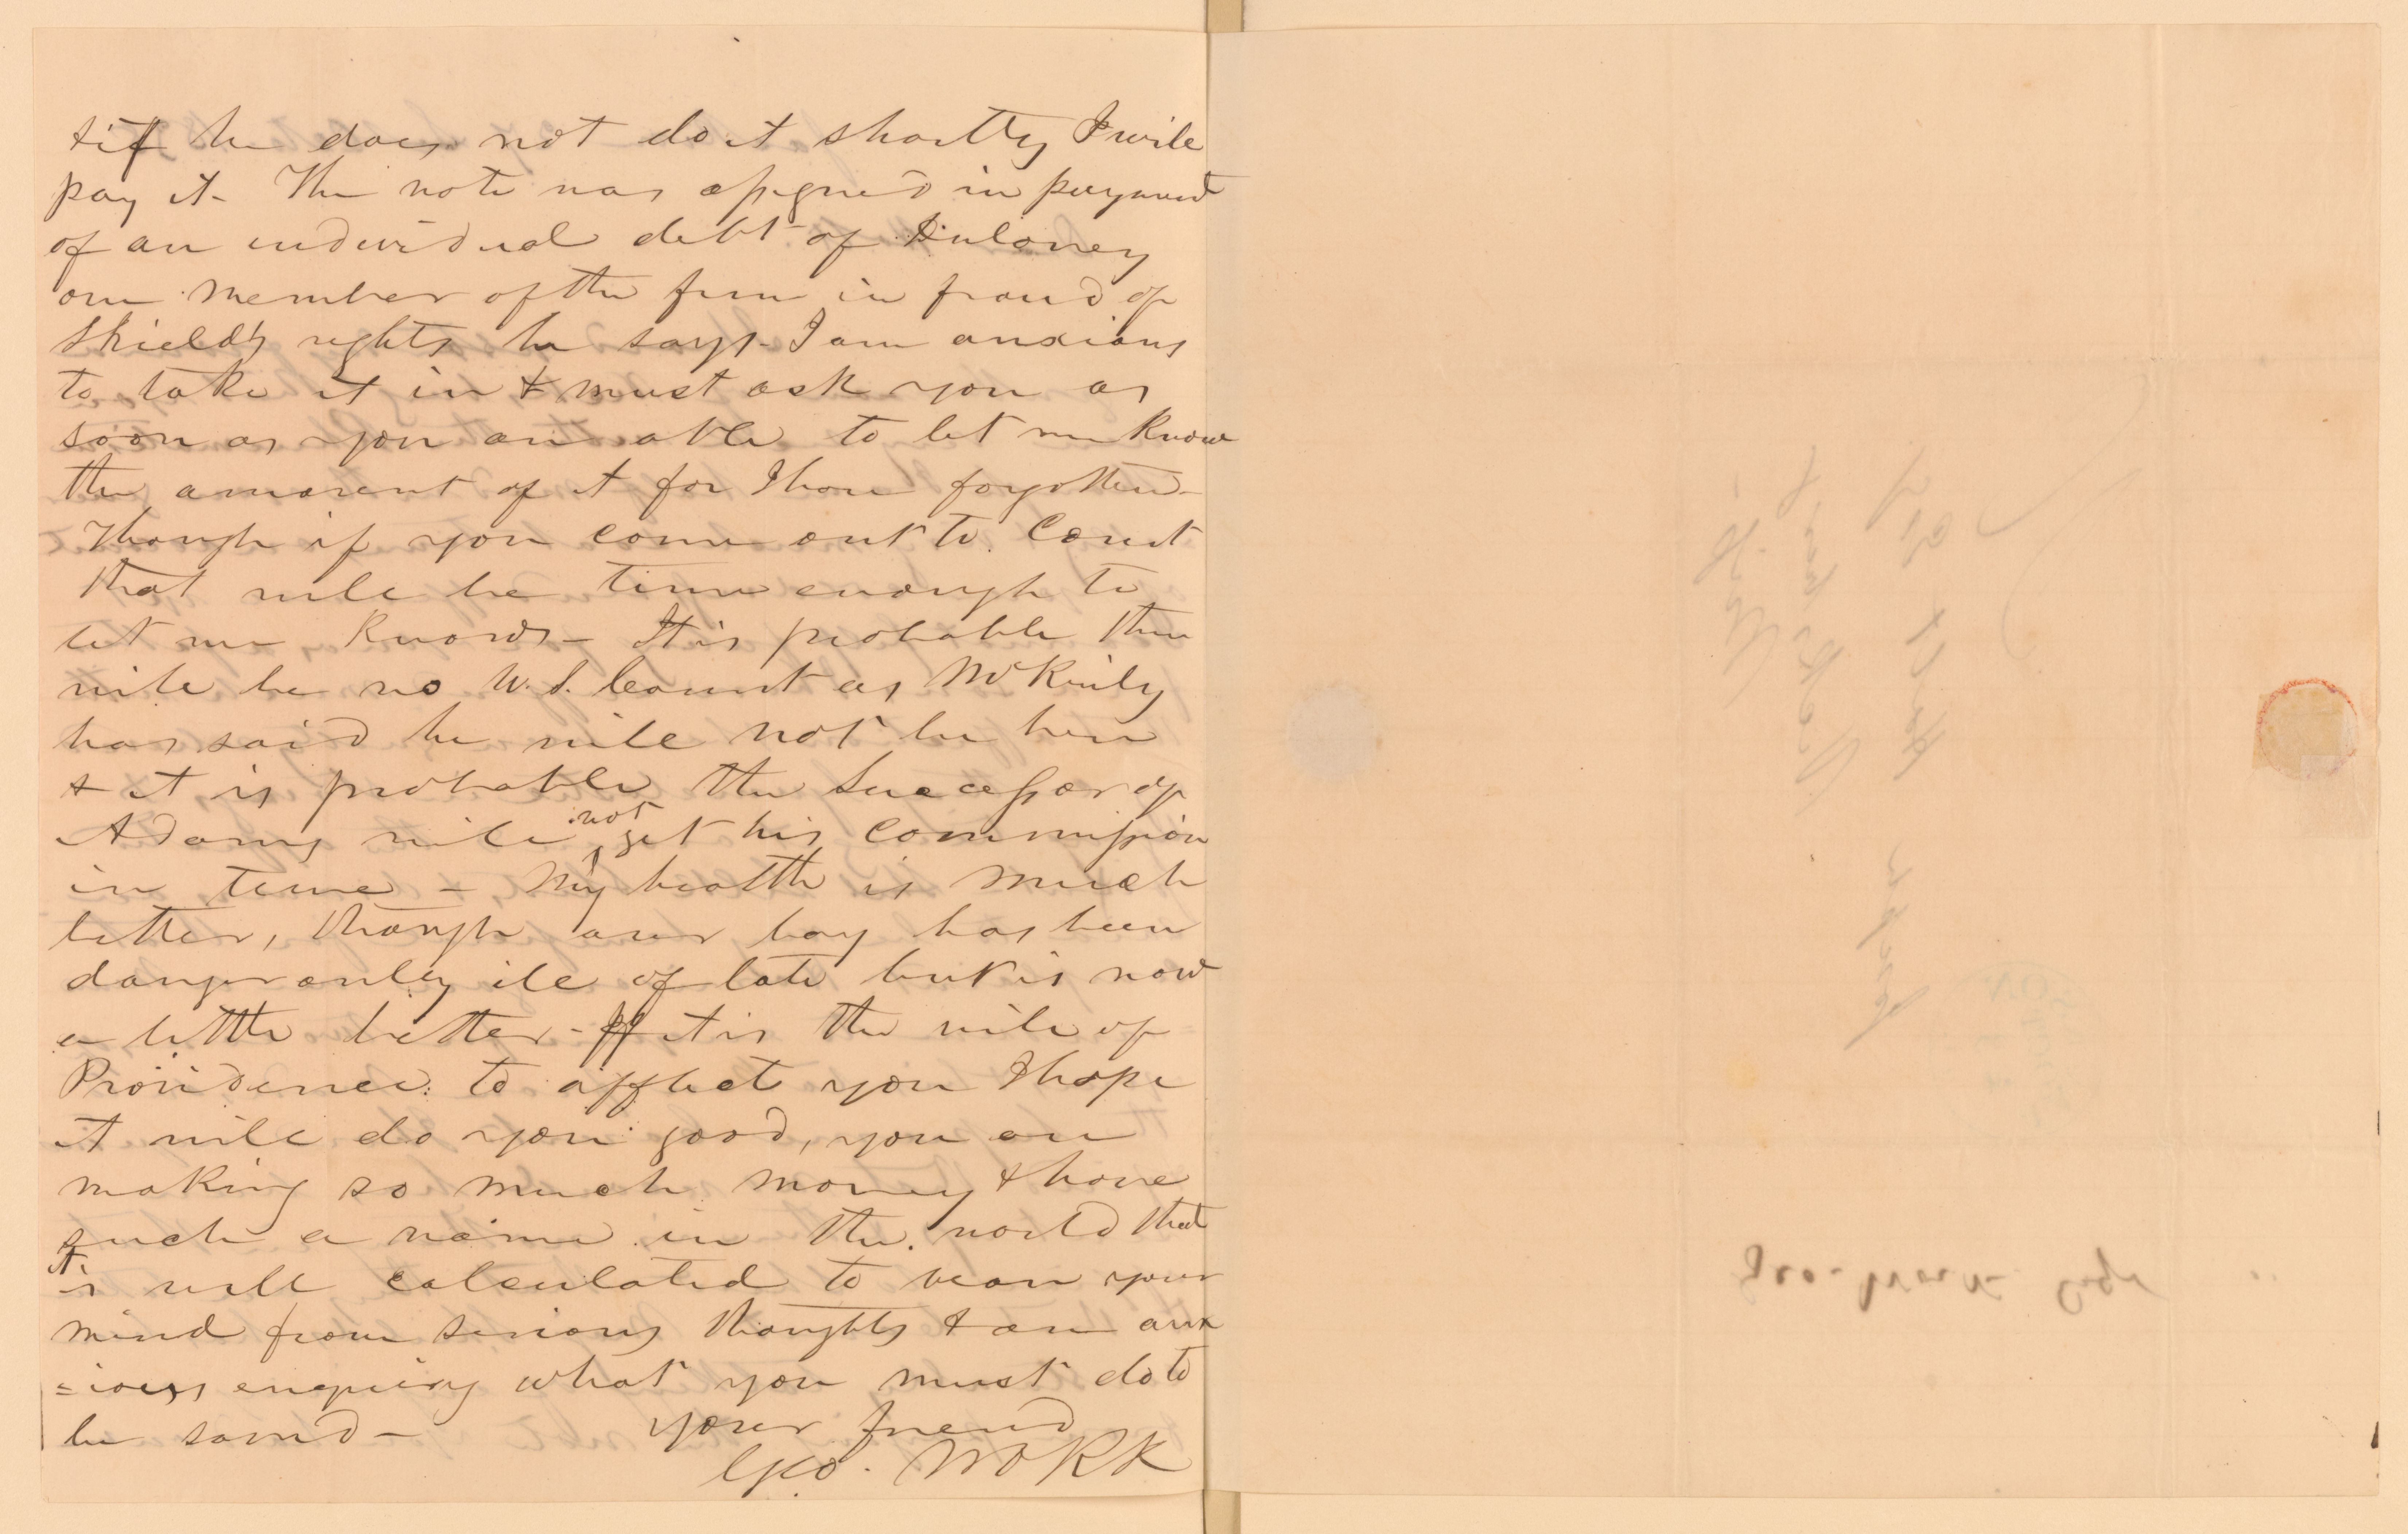 & if he does not do it shortly I will
pay it - The note was assigned in payment
of an individual debt of Duloney
one member of the firm in fraud of
Shield's rights he says - I am anxious
to take it in & must ask you as
soon as you are able to let me know
the amount of it for I have forgotten -
Though if you come out to Court
that will be time enough to
let me know - It is probable there
will be no U.S. Court as McKinly
has said he will not be here
& it is probable the Successor of
Adams will not get his commission
in time - My health is much
better, though our boy has been
dangerously ill of late but is now
a little better - If it is the will of
Providence to afflict you I hope
it will do you good, you are
making so much money & have
such a name in the world that
it is well calculated to wean your
mind from serious thoughts & an anx
=ious enquiry what you must do to
be saved -
your friend
Geo. Work